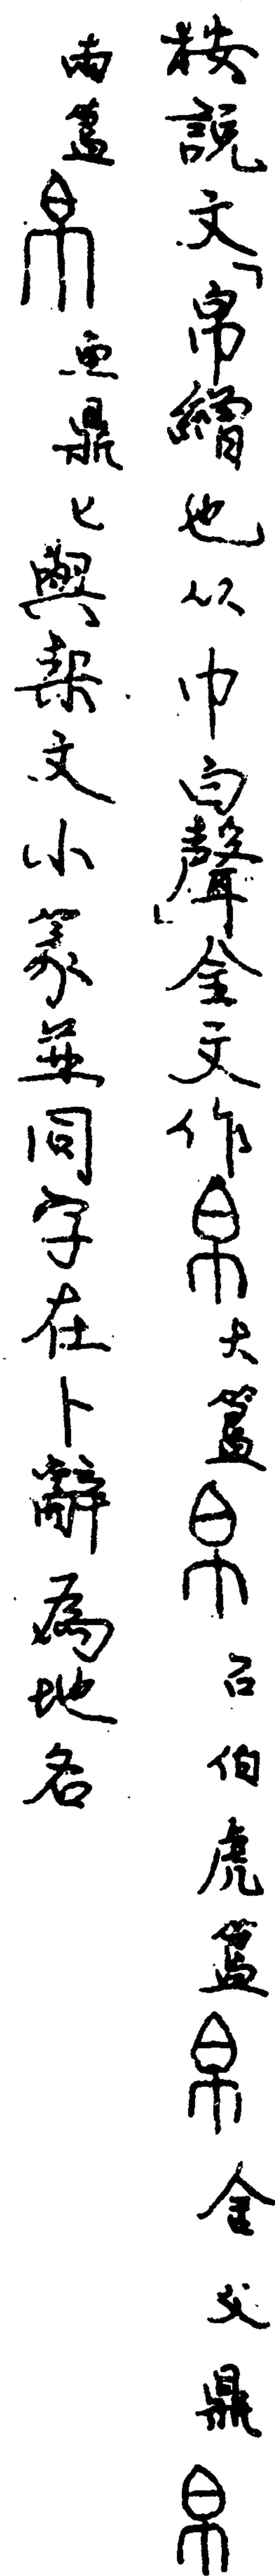 按說文「帛繒也从巾白聲」金文作帛大簋帛召伯虎簋帛舍父鼎帛
兩簋帛魚鼎匕與栔文小篆並同字在卜辭為地名